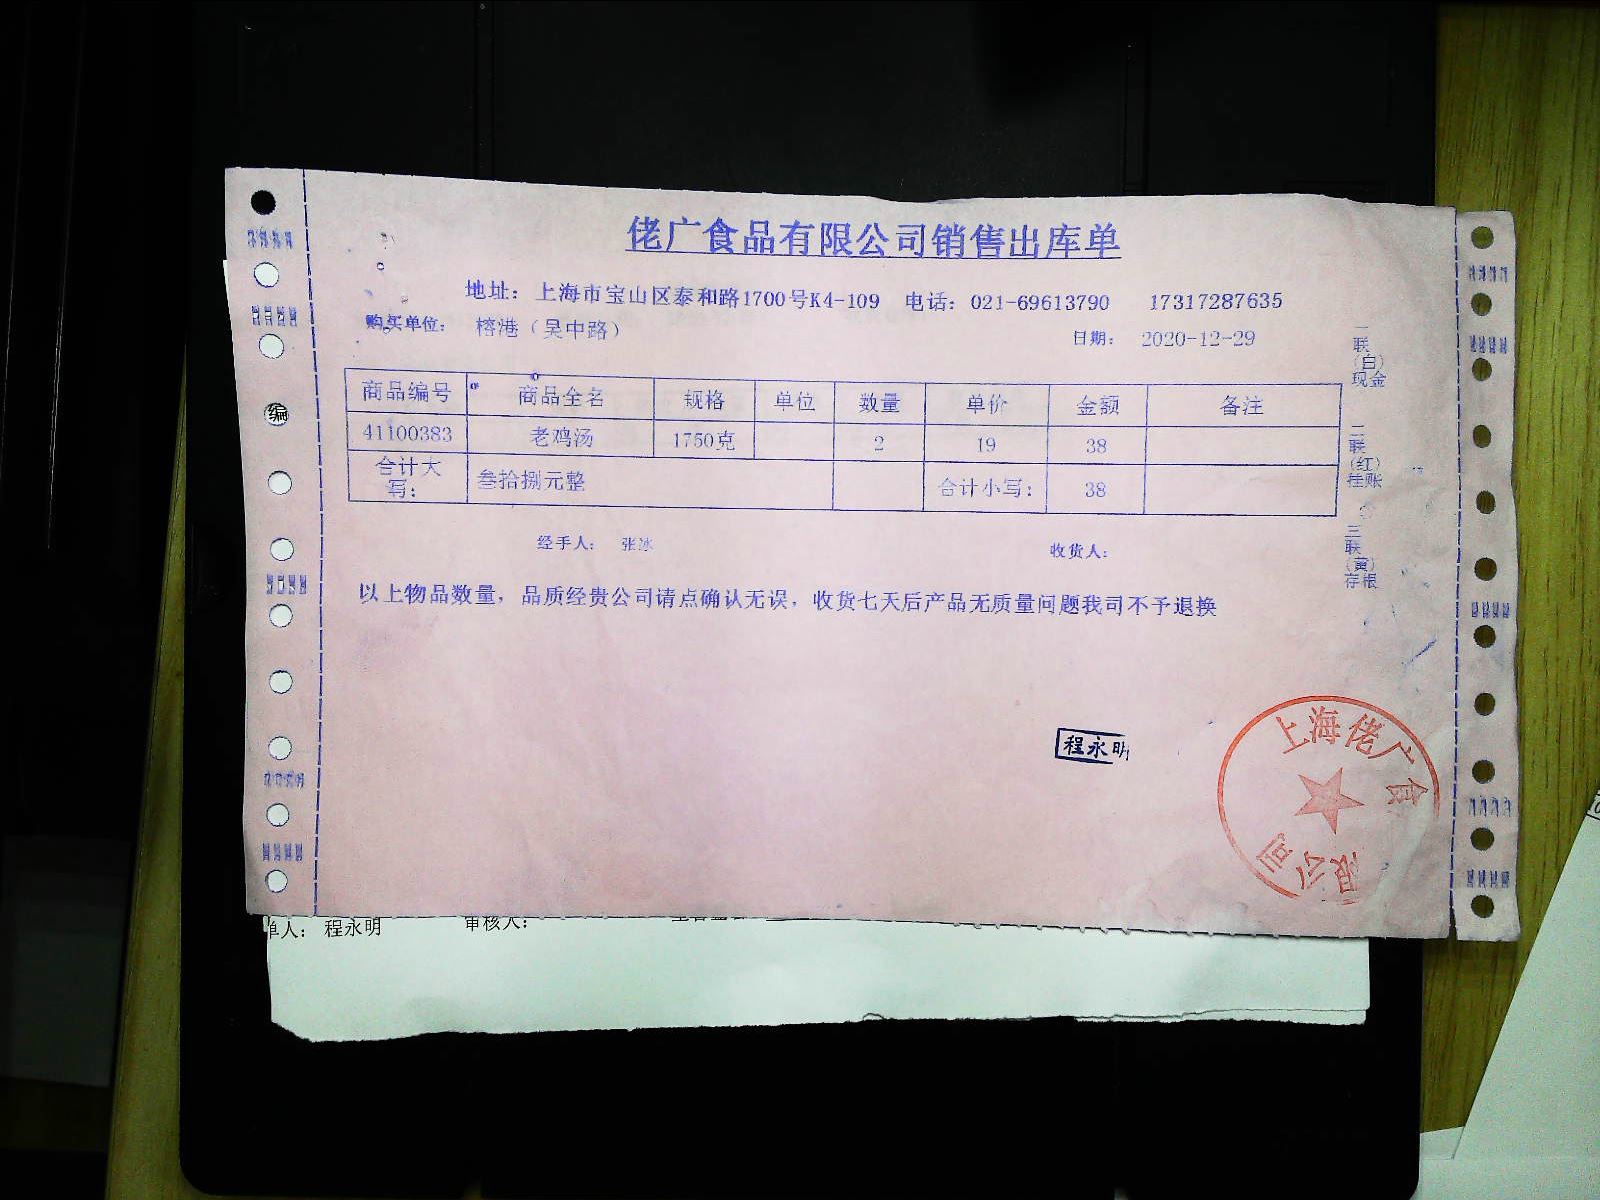 佬广食品有限公司销售出库单
地址：上海市宝山区泰和路1700号K4-109 电话：021-69613790 17317287635
购买单位：榕港（吴中路） 日期：2020-12-29
商品编号 商品全名 规格 单位 数量 单价 金额 备注
41100383 老鸡汤 1750克 2 19 38
合计大写： 叁拾捌元整 合计小写： 38
经手人： 张冰 收货人：
以上物品数量，品质经贵公司请点确认无误，收货七天后产品无质量问题我司不予退换
一联（白）现金
二联（红）挂账
三联（黄）存根
编
程永明
上海佬广食
限公司
单人：程永明 审核人：